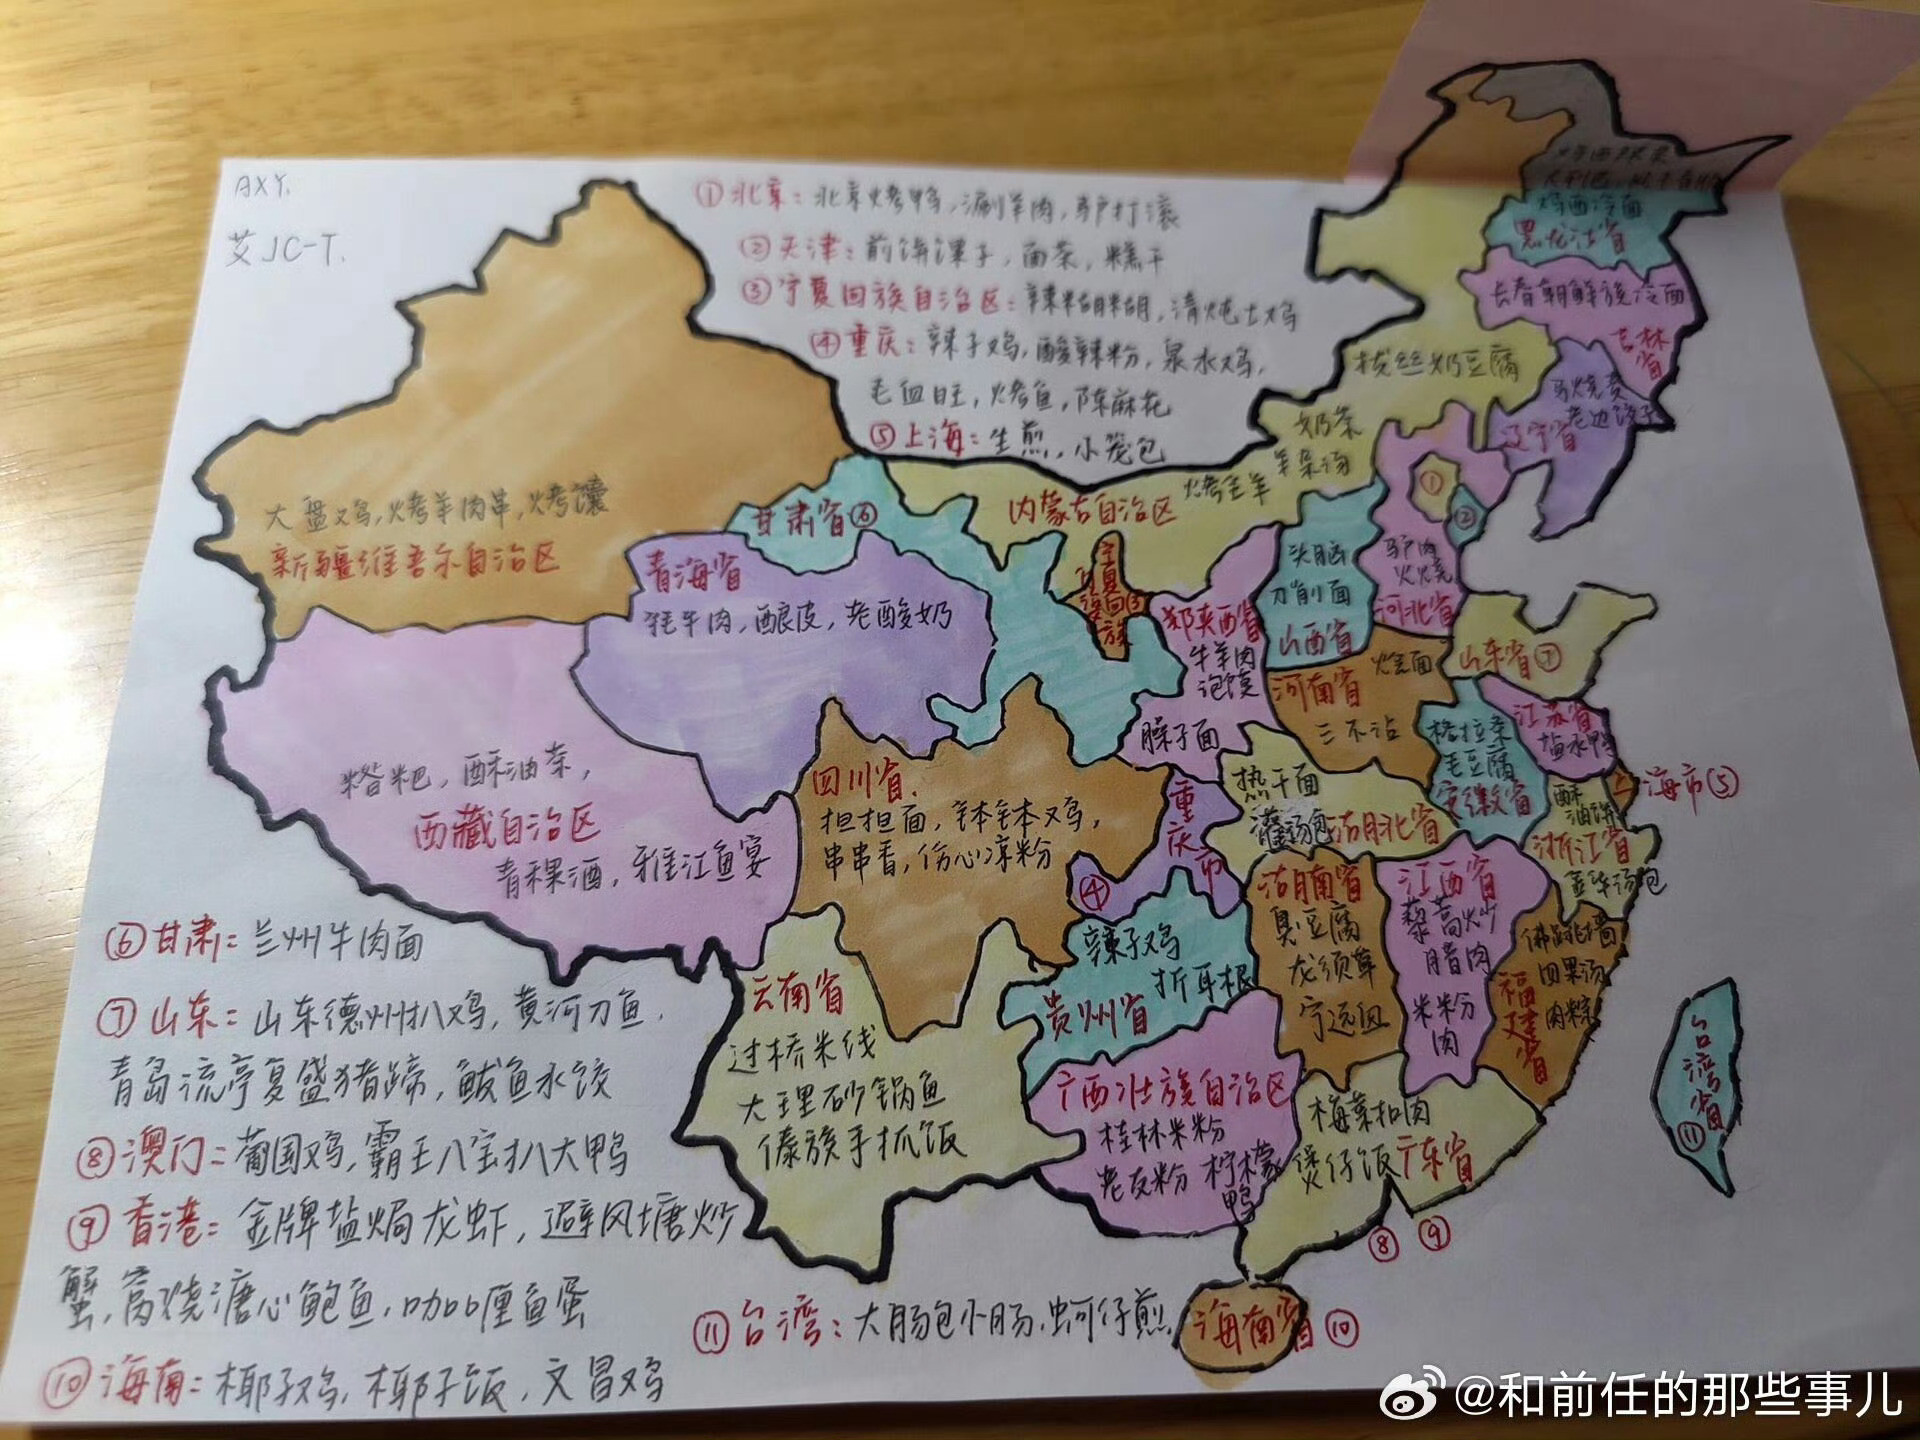 AXY.
艾JC-T.
①北京：北京烤鸭，涮羊肉，驴打滚
②天津：煎饼馃子，面茶，糕干
③宁夏回族自治区：辣糊糊，清炖土鸡
④重庆：辣子鸡，酸辣粉，泉水鸡，
毛血旺，烤鱼，陈麻花
⑤上海：生煎，小笼包
鸡西冷面
黑龙江省
长春朝鲜族冷面
吉林省
马烧麦
老边饺子
辽宁省
拔丝奶豆腐
奶茶
羊杂汤
烤全羊
内蒙古自治区
①
②
驴肉
火烧
河北省
头脑
刀削面
山西省
大盘鸡，烤羊肉串，烤馕
新疆维吾尔自治区
甘肃省⑥
青海省
牦牛肉，酿皮，老酸奶
宁夏回族
③
陕西省
牛羊肉
泡馍
臊子面
烩面
河南省
三不沾
山东省⑦
江苏省
盐水鸭
格拉条
毛豆腐
安徽省
上海市⑤
酥油饼
浙江省
金华汤包
糌粑，酥油茶，
西藏自治区
青稞酒，雅江鱼宴
四川省.
担担面，钵钵鸡，
串串香，伤心凉粉
重庆市
④
热干面
灌汤包
湖北省
湖南省
臭豆腐
龙须草
宁远血
江西省
藜蒿炒
腊肉
米粉
肉
佛跳墙
四果汤
肉粽
福建省
辣子鸡
折耳根
贵州省
云南省
过桥米线
大理砂锅鱼
傣族手抓饭
广西壮族自治区
桂林米粉
老友粉 柠檬
鸭
梅菜扣肉
煲仔饭
广东省
⑧ ⑨
台湾省
⑪
海南省⑩
⑥甘肃：兰州牛肉面
⑦山东：山东德州扒鸡，黄河刀鱼.
青岛流亭夏盛猪蹄，鲅鱼水饺
⑧澳门：葡国鸡，霸王八宝扒大鸭
⑨香港：金牌盐焗龙虾，避风塘炒
蟹，窝烧溏心鲍鱼，咖喱鱼蛋
⑩海南：椰子鸡，椰子饭，文昌鸡
⑪台湾：大肠包小肠，蚵仔煎
@和前任的那些事儿